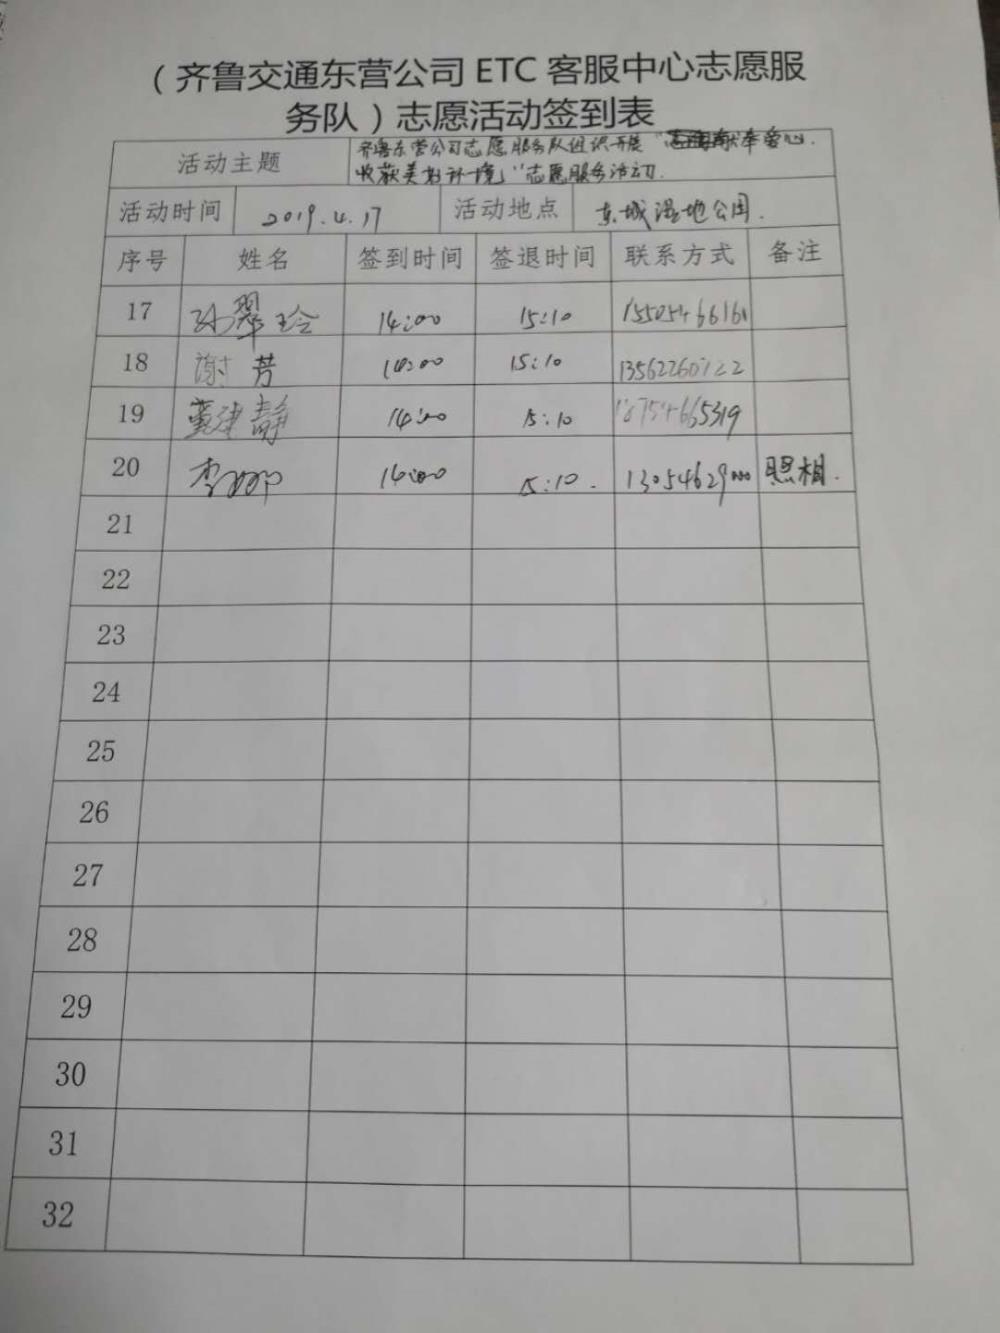 （齐鲁交通东营公司 ETC 客服中心志愿服
务队）志愿活动签到表
活动主题 齐鲁东营公司志愿服务队组织开展“奉爱心.
收获美好环境”志愿服务活动.
活动时间 2019.4.17 活动地点 东城湿地公园.
序号 姓名 签到时间 签退时间 联系方式 备注
17 孙翠玲 14:00 15:10 15505466161
18 谢芳 14:00 15:10
19 静 14:00 15:10 18754665319
20 李 14:00 15:10. 13054629000 照相.
21
22
23
24
25
26
27
28
29
30
31
32